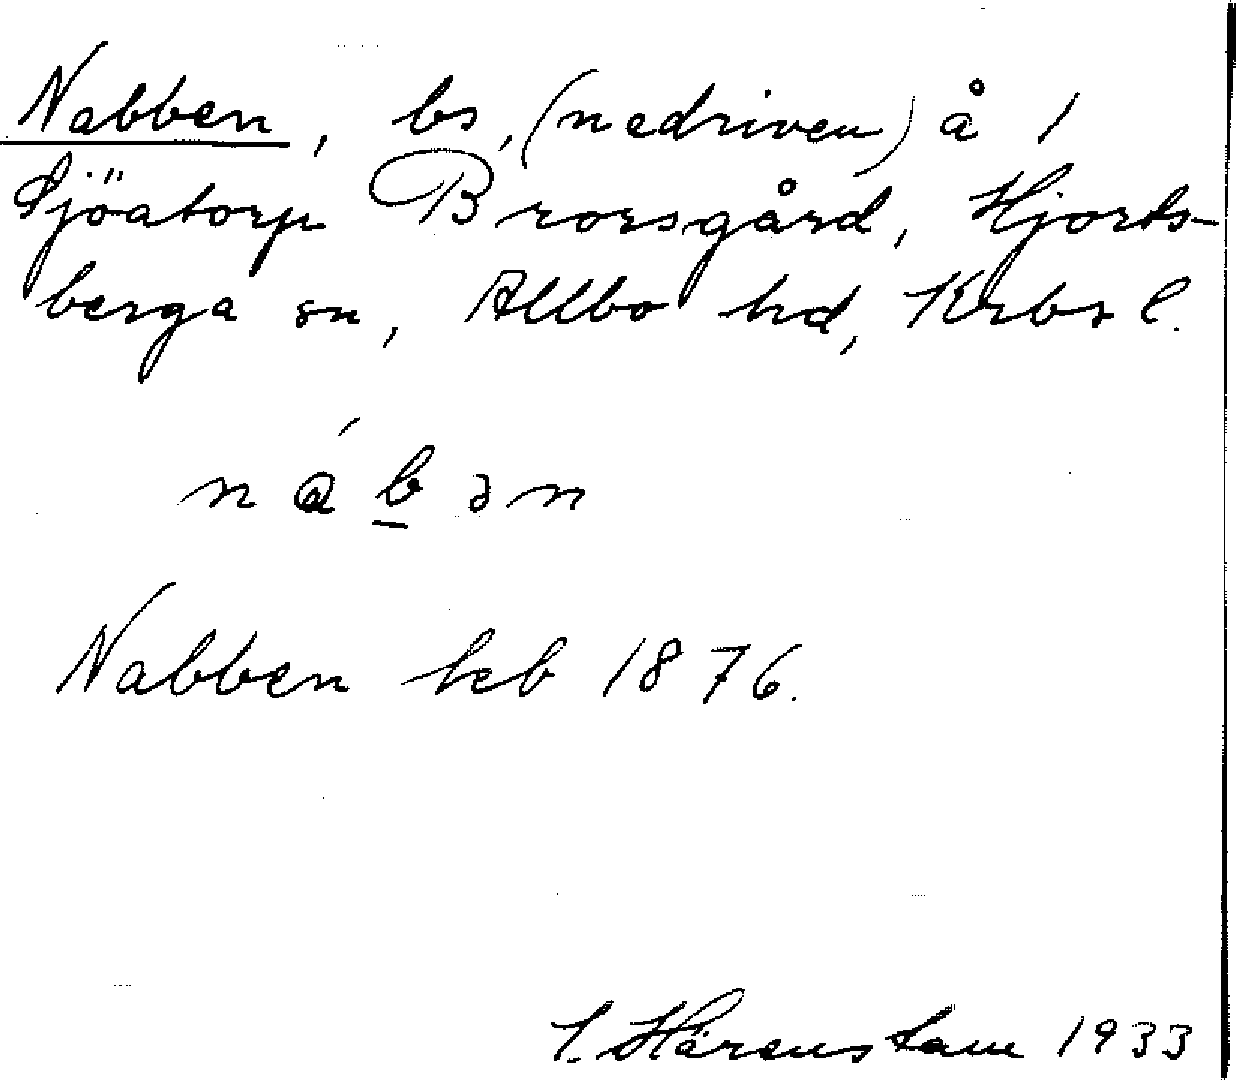 Nabben, bs, (nedriven) å 1
Sjöatorp Brorsgård, Hjorts-
berga sn, Allbo hd, Krbs l.
nábən
Nabben hcb 1876.
Härenstam 1933